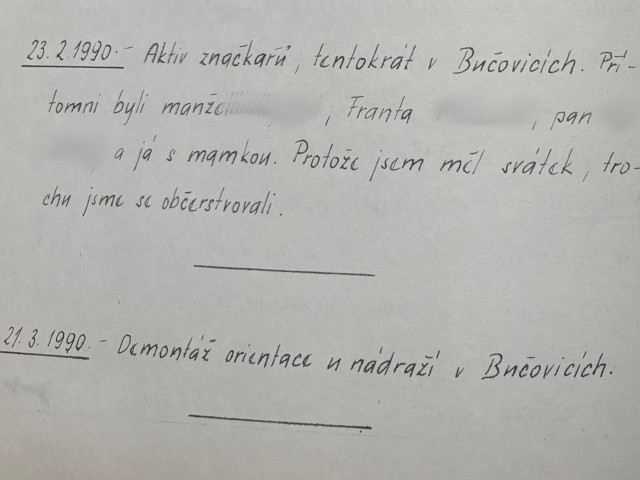 23.2.1990.- Aktiv značkařů, tentokrát v Bučovicích. Pří-
tomni byli , Franta , pan
a já s mamkou. Protože jsem měl svátek, tro-
chu jsme se občerstvovali.
21.3.1990.- Demontáž orientace u nádraží v Bučovicích.